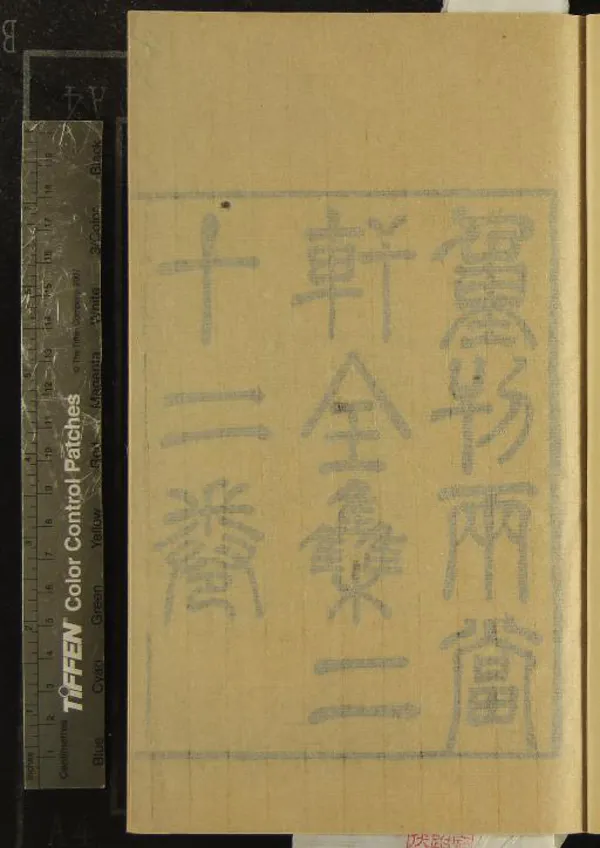 兩當
軒全集二
十二卷
TIFFEN Color Control Patches
© The Tiffen Company, 2007
Blue Cyan Green Yellow Red Magenta White 3/Color Black
Inches
1 2 3 4 5 6 7
Centimetres
1 2 3 4 5 6 7 8 9 10 11 12 13 14 15 16 17 18 19